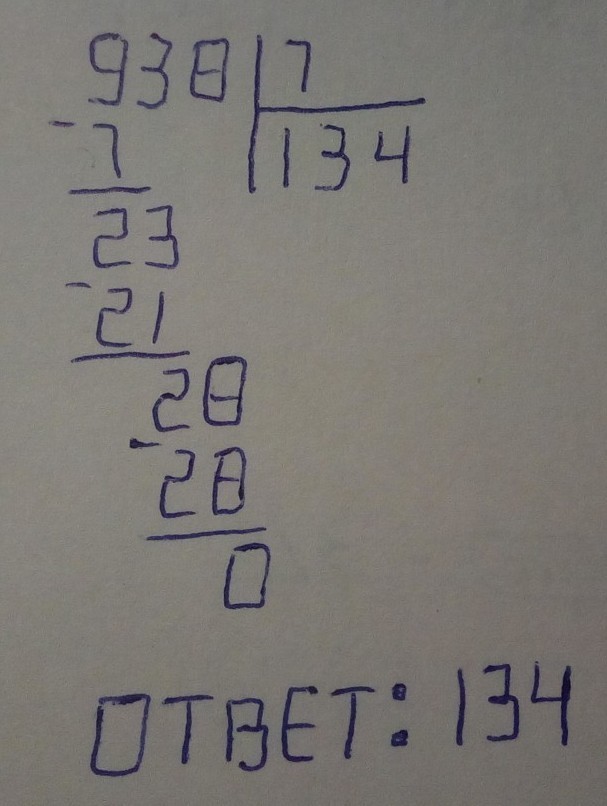 938 7
- 7 134
23
- 21
28
- 28
0
ОТВЕТ: 134